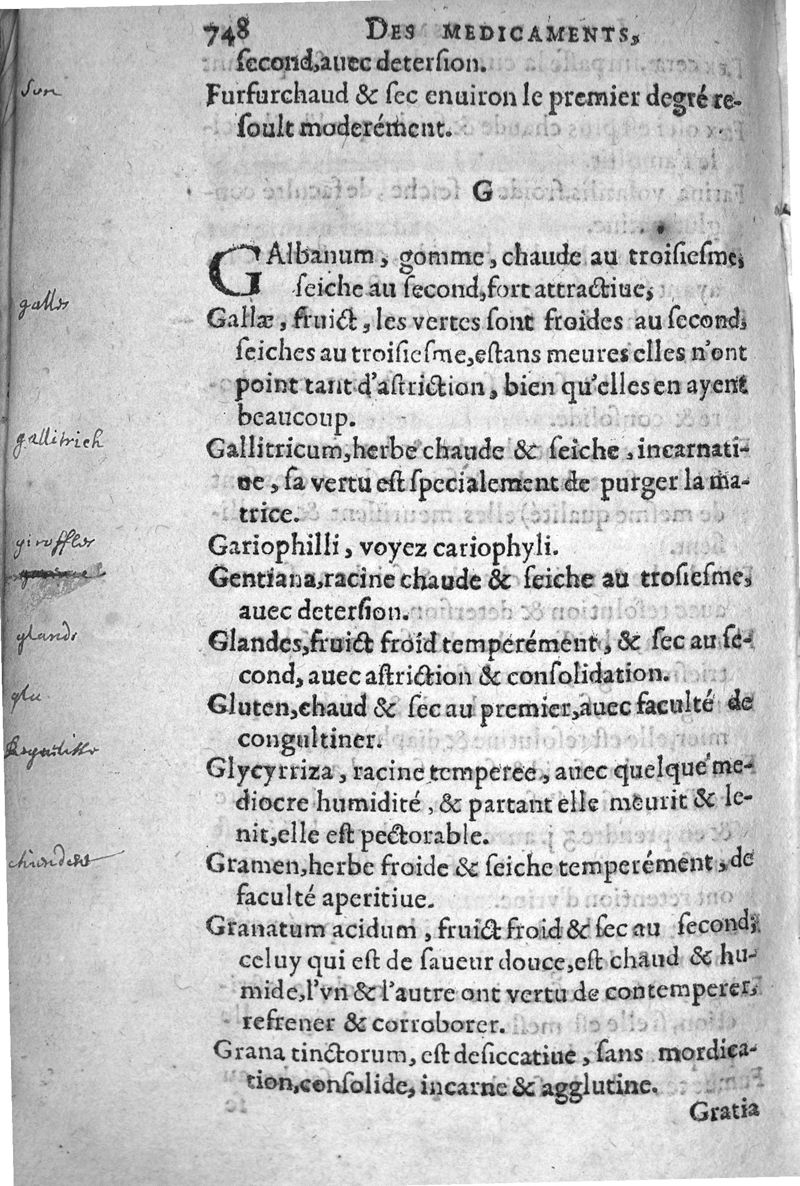 748 DES MEDICAMENTS,
ſecond, auec deterſion.
son
Furfurchaud & ſec enuiron le premier degré re-
ſoult moderément.
G
GAlbanum, gomme, chaude au troiſieſme,
ſeiche au ſecond, fort attractiue,
galles
Gallæ, fruict, les vertes ſont froides au ſecond,
ſeiches au troiſieſme, eſtans meures elles n'ont
point tant d'aſtriction, bien qu'elles en ayent
beaucoup.
gallitrich
Gallitricum, herbe chaude & ſeiche, incarnati-
ue, ſa vertu eſt ſpecialement de purger la ma-
trice.
giroffles
Gariophilli, voyez cariophyli.
Gentiana, racine chaude & ſeiche au troſieſme,
auec deterſion.
glands
Glandes, fruict froid temperément, & ſec au ſe-
cond, auec aſtriction & conſolidation.
glu
Gluten, chaud & ſec au premier, auec faculté de
congultiner.
Glycyrriza, racine temperee, auec quelque me-
diocre humidité, & partant elle meurit & le-
nit, elle eſt pectorable.
chiendent
Gramen, herbe froide & ſeiche temperément, de
faculté aperitiue.
Granatum acidum, fruict froid & ſec au ſecond,
celuy qui eſt de ſaueur douce, eſt chaud & hu-
mide, l'vn & l'autre ont vertu de contemperer,
refrener & corroborer.
Grana tinctorum, eſt deſiccatiue, ſans mordica-
tion, conſolide, incarne & agglutine.
Gratia